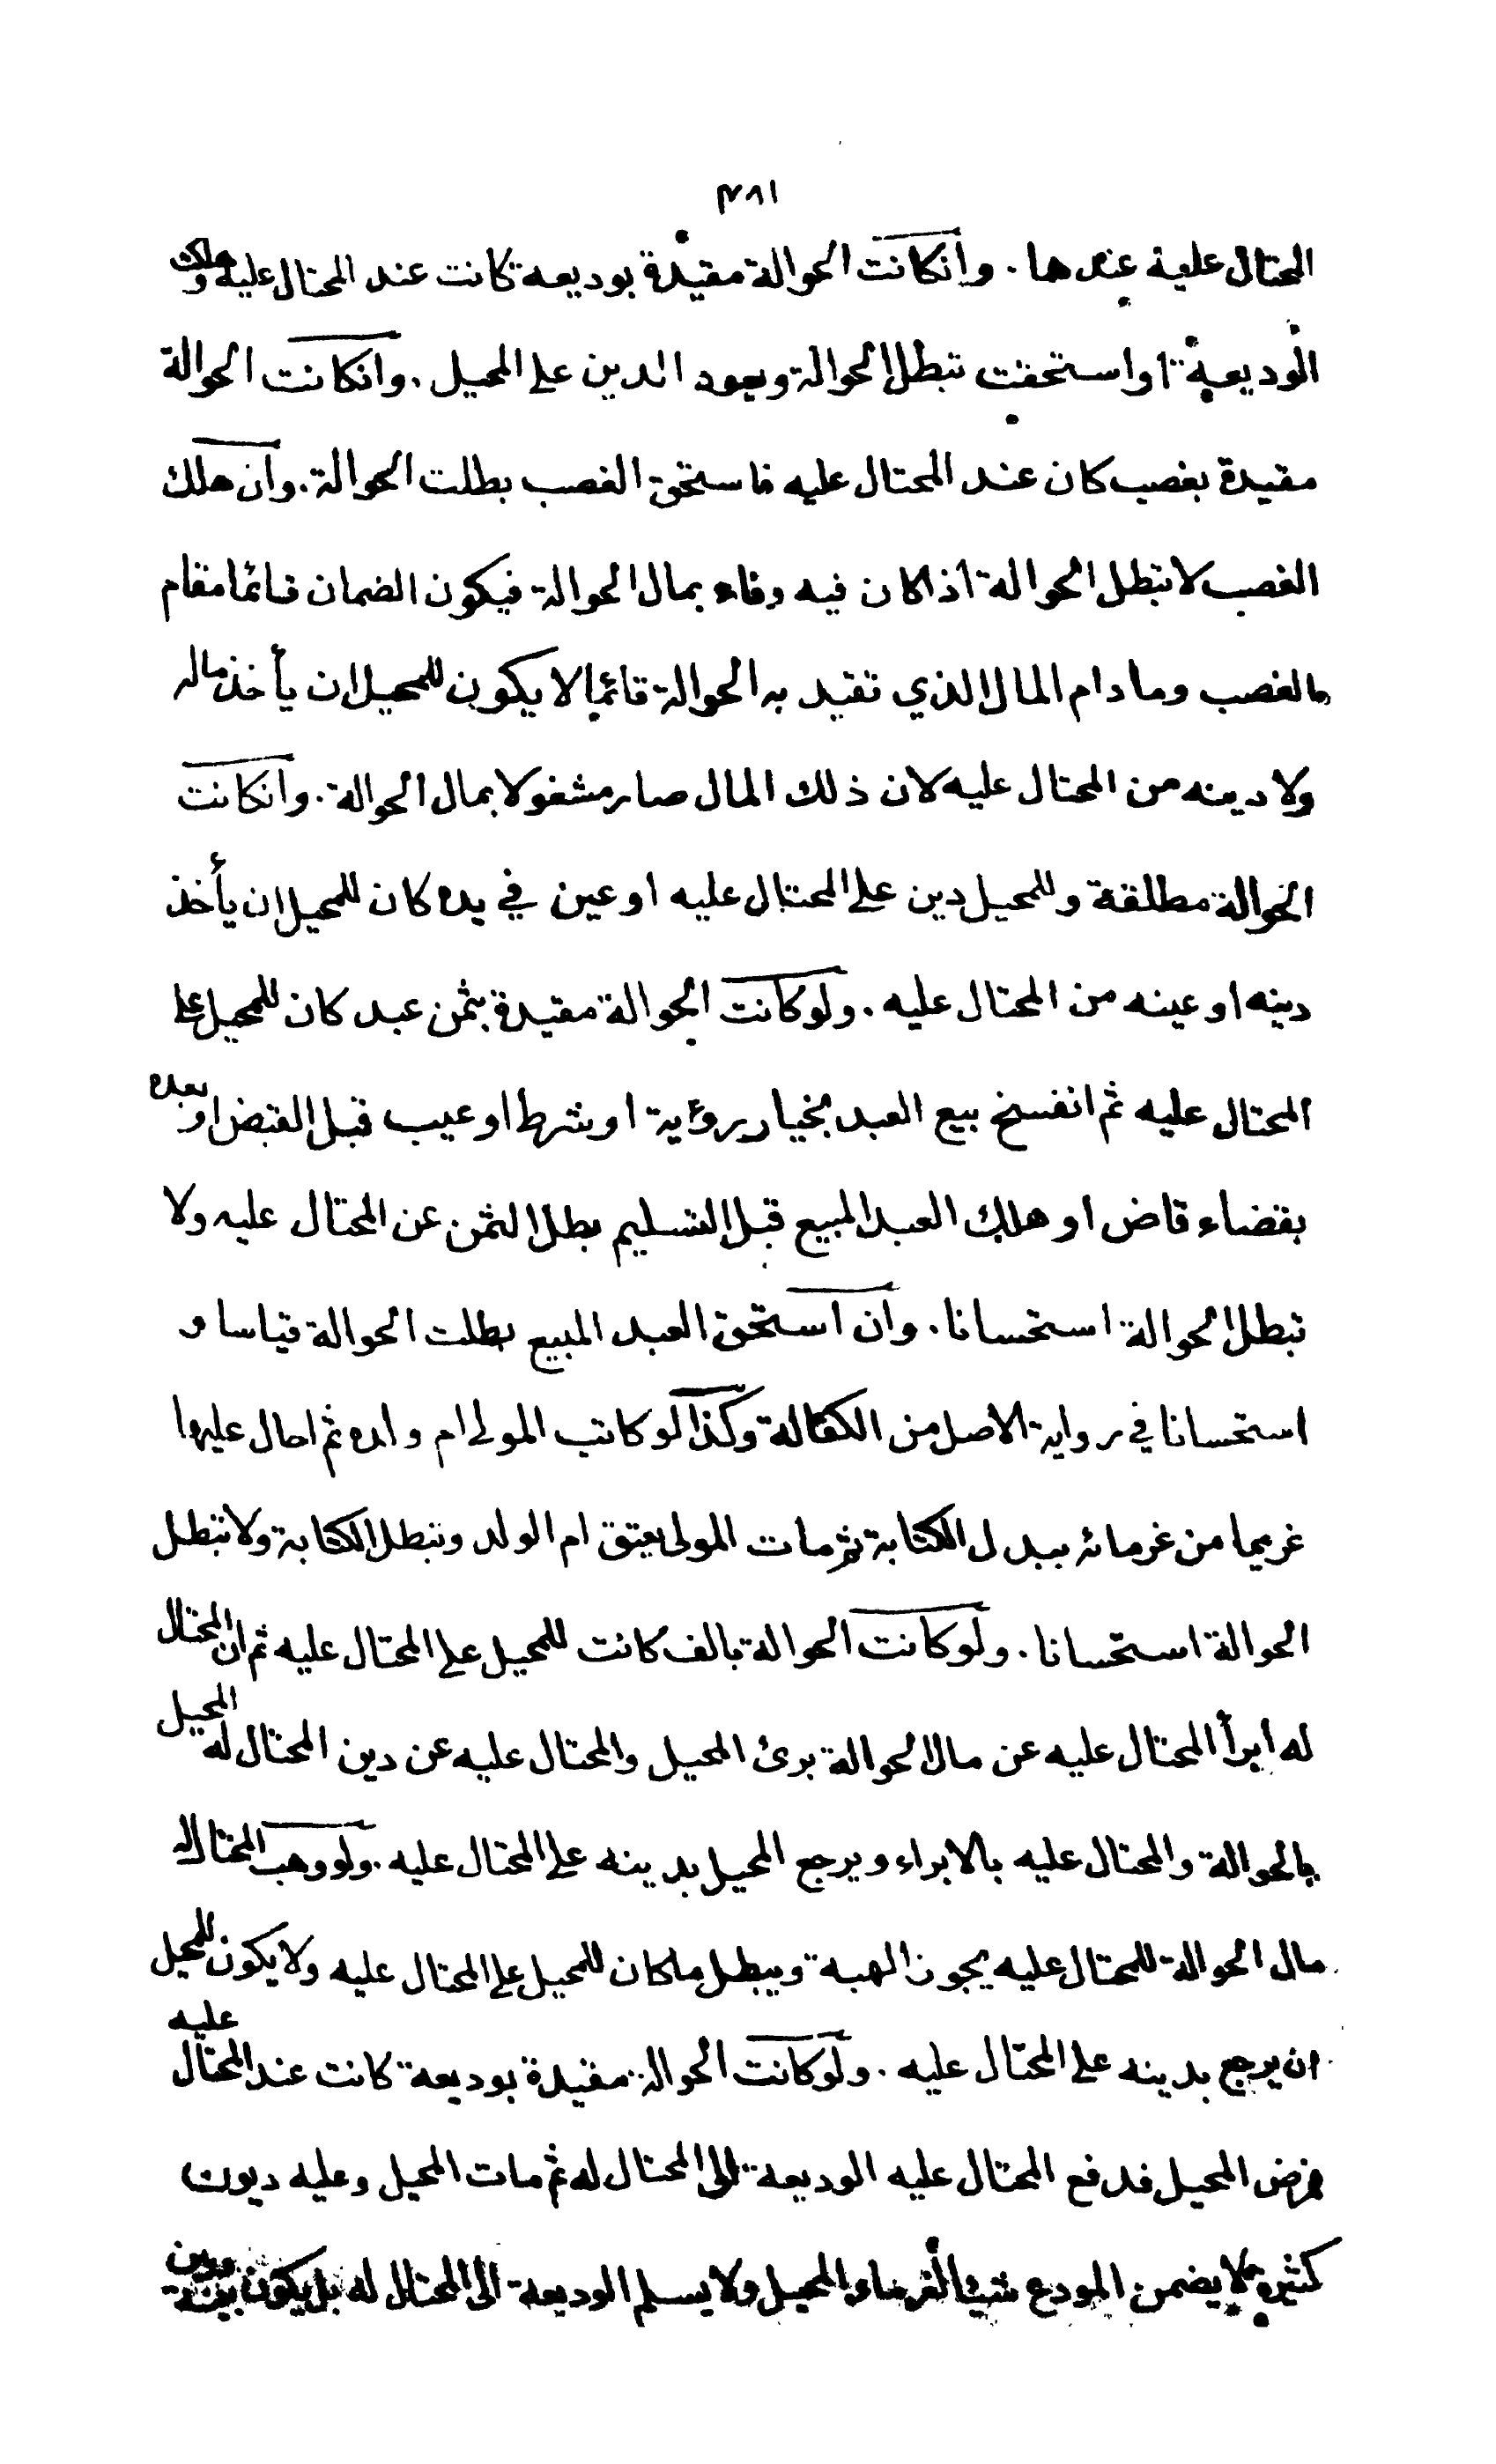 ٣٨١
المحتال عليه عندها . وانكانت الحوالة مقيدة بوديعة كانت عند المحتال عليه وهلكت
الوديعة اواستحقت تبطل الحوالة ويعود الدين على المحيل . وانكانت الحوالة
مقيدة بغصب كان عند المحتال عليه فاستحق الغصب بطلت الحوالة . وان هلك
الغصب لا تبطل الحوالة اذا كان فيه وفاء بمال الحوالة فيكون الضمان قائما مقام
الغصب وما دام المال الذي تقيد به الحوالة قائما لا يكون للمحيل ان يأخذ ماله
ولا دينه من المحتال عليه لان ذلك المال صار مشغولا بمال الحوالة . وانكانت
الحوالة مطلقة وللمحيل دين على المحتال عليه او عين في يده كان للمحيل ان يأخذ
دينه او عينه من المحتال عليه . ولوكانت الحوالة مقيدة بثمن عبد كان للمحيل على
المحتال عليه ثم انفسخ بيع العبد بخيار رؤية او شرط او عيب قبل القبض او بعده
بقضاء قاض او هلك العبد المبيع قبل التسليم بطل الثمن عن المحتال عليه ولا
تبطل الحوالة استحسانا . وان استحق العبد المبيع بطلت الحوالة قياسا و
استحسانا في رواية الاصل من الكفالة وكذا لو كاتب المولى ام ولده ثم احال عليها
غريما من غرمائه ببدل الكتابة ثم مات المولى يعتق ام الولد وتبطل الكتابة ولا تبطل
الحوالة استحسانا . ولوكانت الحوالة بالف كانت للمحيل على المحتال عليه ثم ان المحتال
له ابرأ المحتال عليه عن مال الحوالة برئ المحيل والمحتال عليه عن دين المحتال له المحيل
بالحوالة والمحتال عليه بالابراء ويرجع المحيل بدينه على المحتال عليه . ولو وهب المحتال له
مال الحوالة للمحتال عليه يجوز الهبة ويبطل ما كان للمحيل على المحتال عليه ولا يكون للمحيل
ان يرجع بدينه على المحتال عليه . ولوكانت الحوالة مقيدة بوديعة كانت عند المحتال عليه
فرض المحيل فدفع المحتال عليه الوديعة الى المحتال له ثم مات المحيل وعليه ديون
كثيرة لا يضمن المودع شيئا لغرماء المحيل ولا يسلم الوديعة الى المحتال له بل يكون بينه وبين